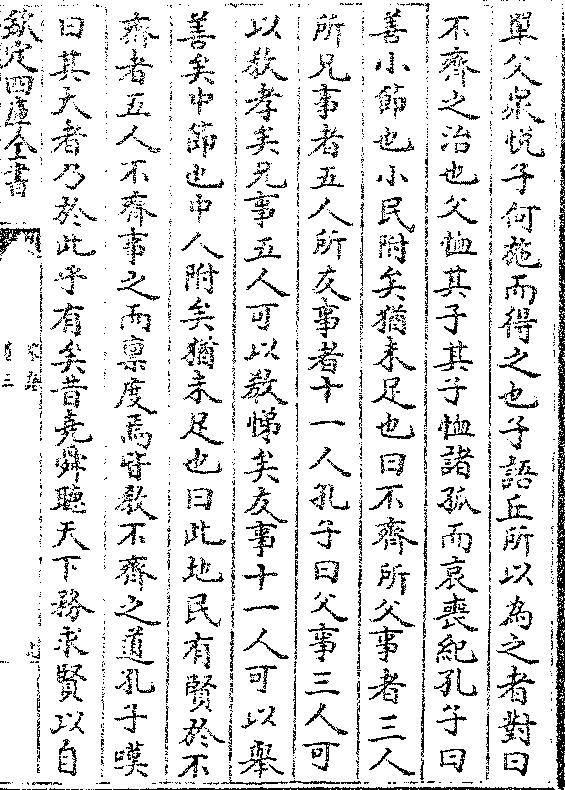 單父衆悅子何施而得之也子語丘所以為之者對曰
不齊之治也父恤其子其子恤諸孤而哀喪紀孔子曰
善小節也小民附矣猶未足也曰不齊所父事者三人
所兄事者五人所友事者十一人孔子曰父事三人可
以教孝矣兄事五人可以教悌矣友事十一人可以舉
善矣中節也中人附矣猶未足也曰此地民有賢於不
齊者五人不齊事之而稟度焉皆教不齊之道孔子嘆
曰其大者乃於此乎有矣昔堯舜聽天下務求賢以自
欽定四庫全書